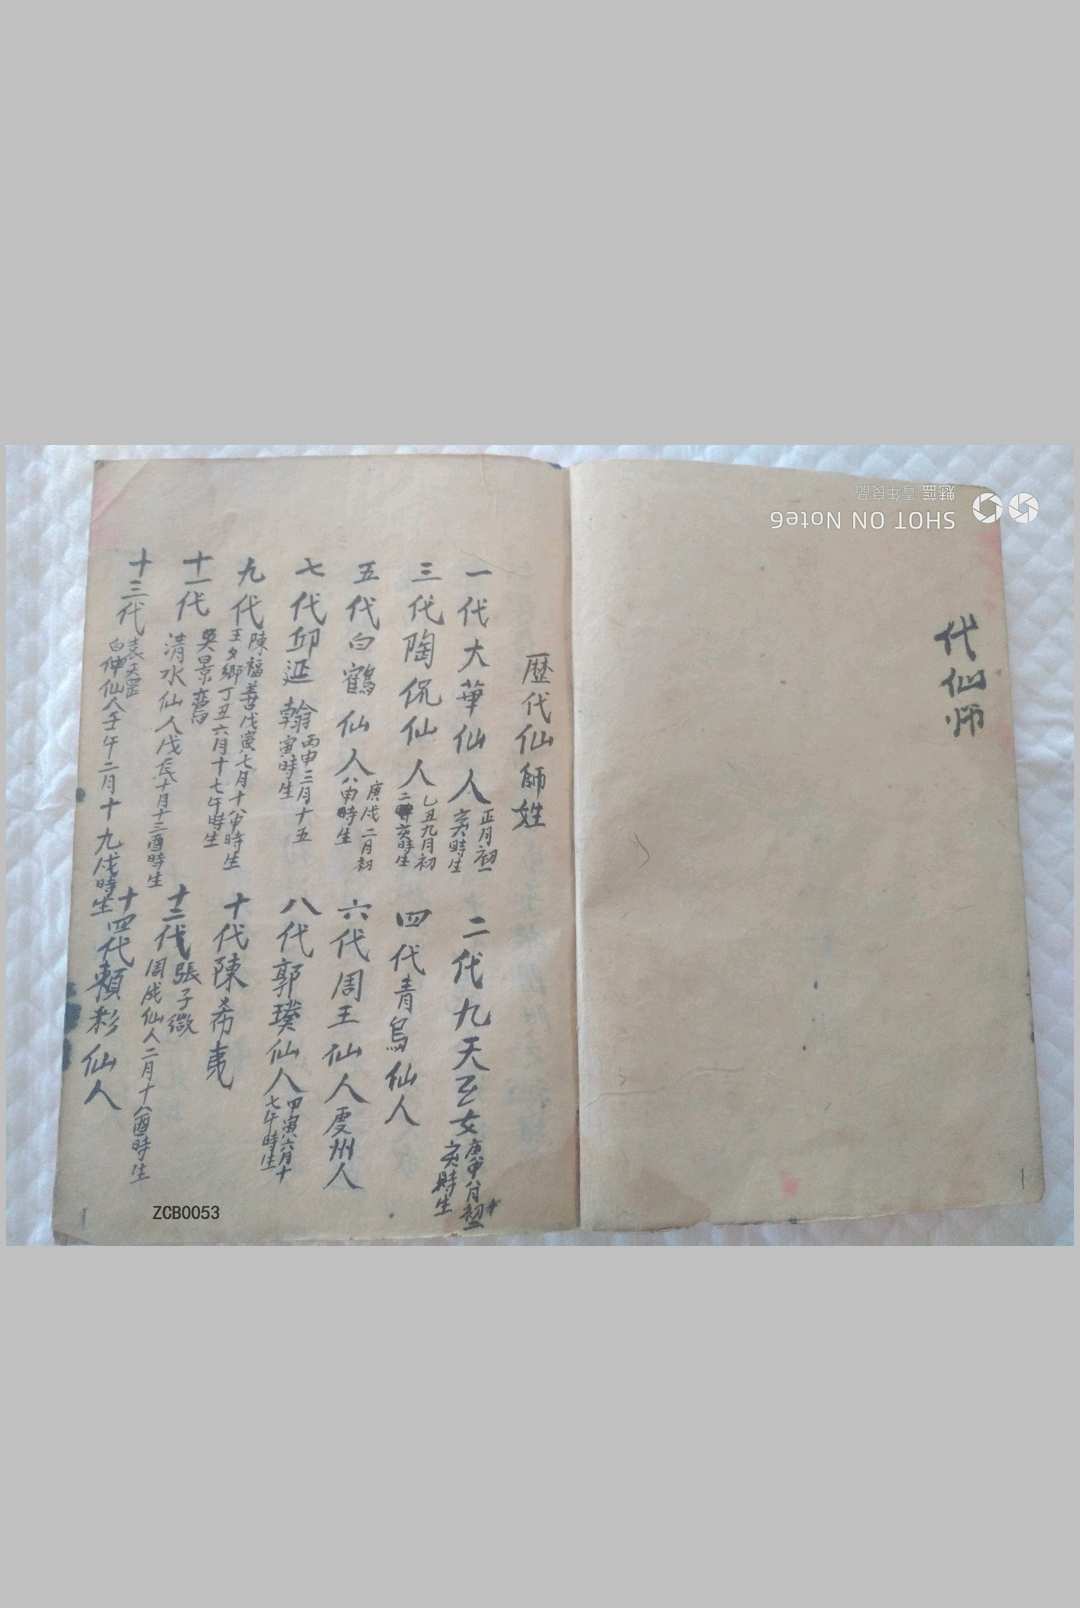 代仙师
歷代仙師姓
一代大華仙人 正月初一亥時生
二代九天玄女 庚申八月初一亥時生
三代陶侃仙人 乙丑九月初二亥時生
四代青烏仙人
五代白鶴仙人 庚戌二月初八申時生
六代周王仙人處州人
七代邱延翰 丙申三月十五寅時生
八代郭璞仙人 甲寅六月十七午時生
九代 陳福善戊寅七月十八申時生
王夕鄉丁丑六月十七午時生
十代陳希夷
十一代 吳景鸞
清水仙人戊辰十月十二酉時生
十二代 張子微
周成仙人二月十八酉時生
十三代 袁天罡
白仲仙人壬午二月十九戌時生
十四代賴彩仙人
ZCB0053
SHOT ON Note6
魅藍 青年良品